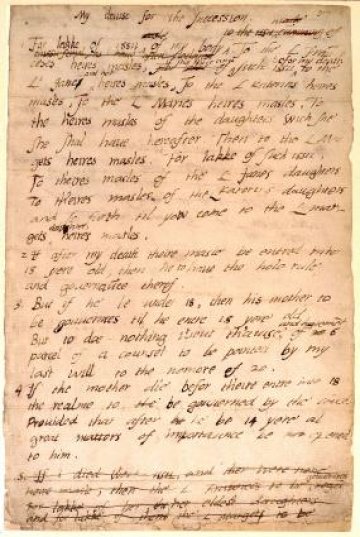 My devise for the Succession.
1. For lakke of issu of my body To the L Fran
ceses heires masles, if she have any such issu before my death to the
L' Janes and her heires masles, To the L Katerins heires
masles, To the L Maries heires masles, To
the heires masles of the daughters wich she
she shal haue hereafter. Then to the L Mar
gets heires masles. For lakke of such issu,
To theires masles of the L Janes daughters
To theires masles of the L Katerins daughters
and so forth til yow come to the L Mar
gets daughters heires masles.
2. If after my death theire masle be entred into
18 yere old, then he to haue the hole rule
and gouernance therof.
3. But if he be under 18, then his mother to
be gouuernres til he entre 18 yere old
But to doe nothing without thauise and agreement of
parcel of a counsel to be pointed by my
last will to the nombre of 20.
4 If the mother die befor theire entre into 18
the realme to be gouuerned by the counsel
Prouided that after he be 14 yere al
great matters of importaunce be opened
to him.
5. If i died without issu, and ther were none
heire masle, then the L Fraunces to be gouuernres
for lakke of her, her eldest daughters
and for lakke of them the L Marget to be